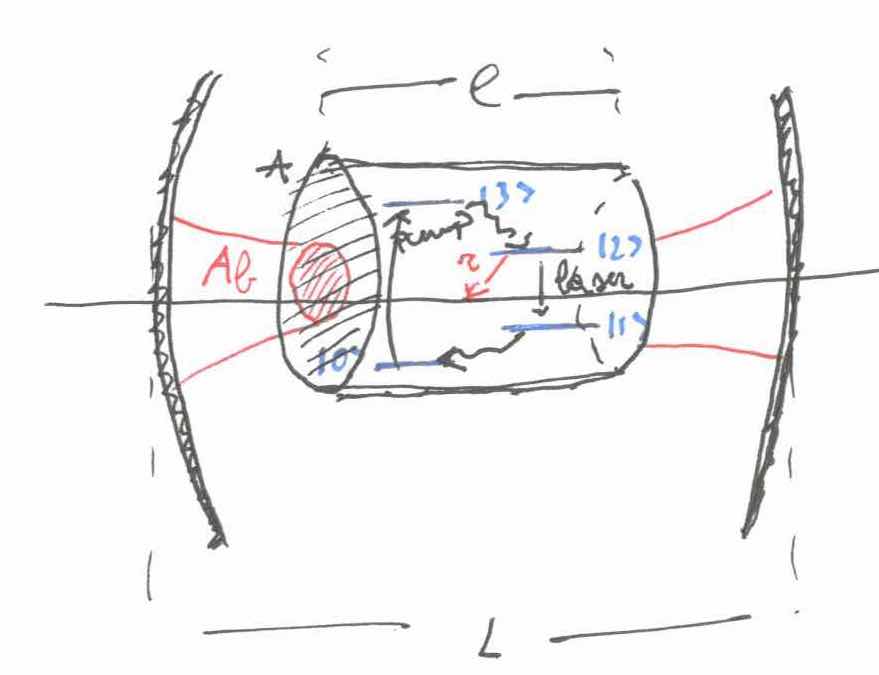 ℓ
A
|3>
pump
|2>
Ab
τ
laser
|1>
|0>
L